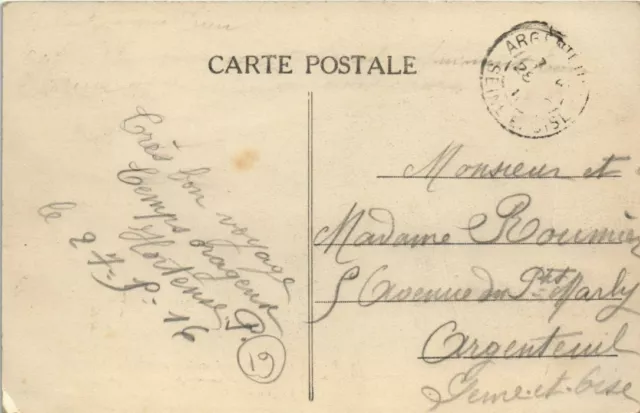 CARTE POSTALE
ARGENTEUIL
SEINE-ET-OISE
Très bon voyage
temps orageux
Hortense P.
le 27-5-16
19
Monsieur et
Madame Roumier
5 Avenue du Ptit Marly
Argenteuil
Seine-et-Oise